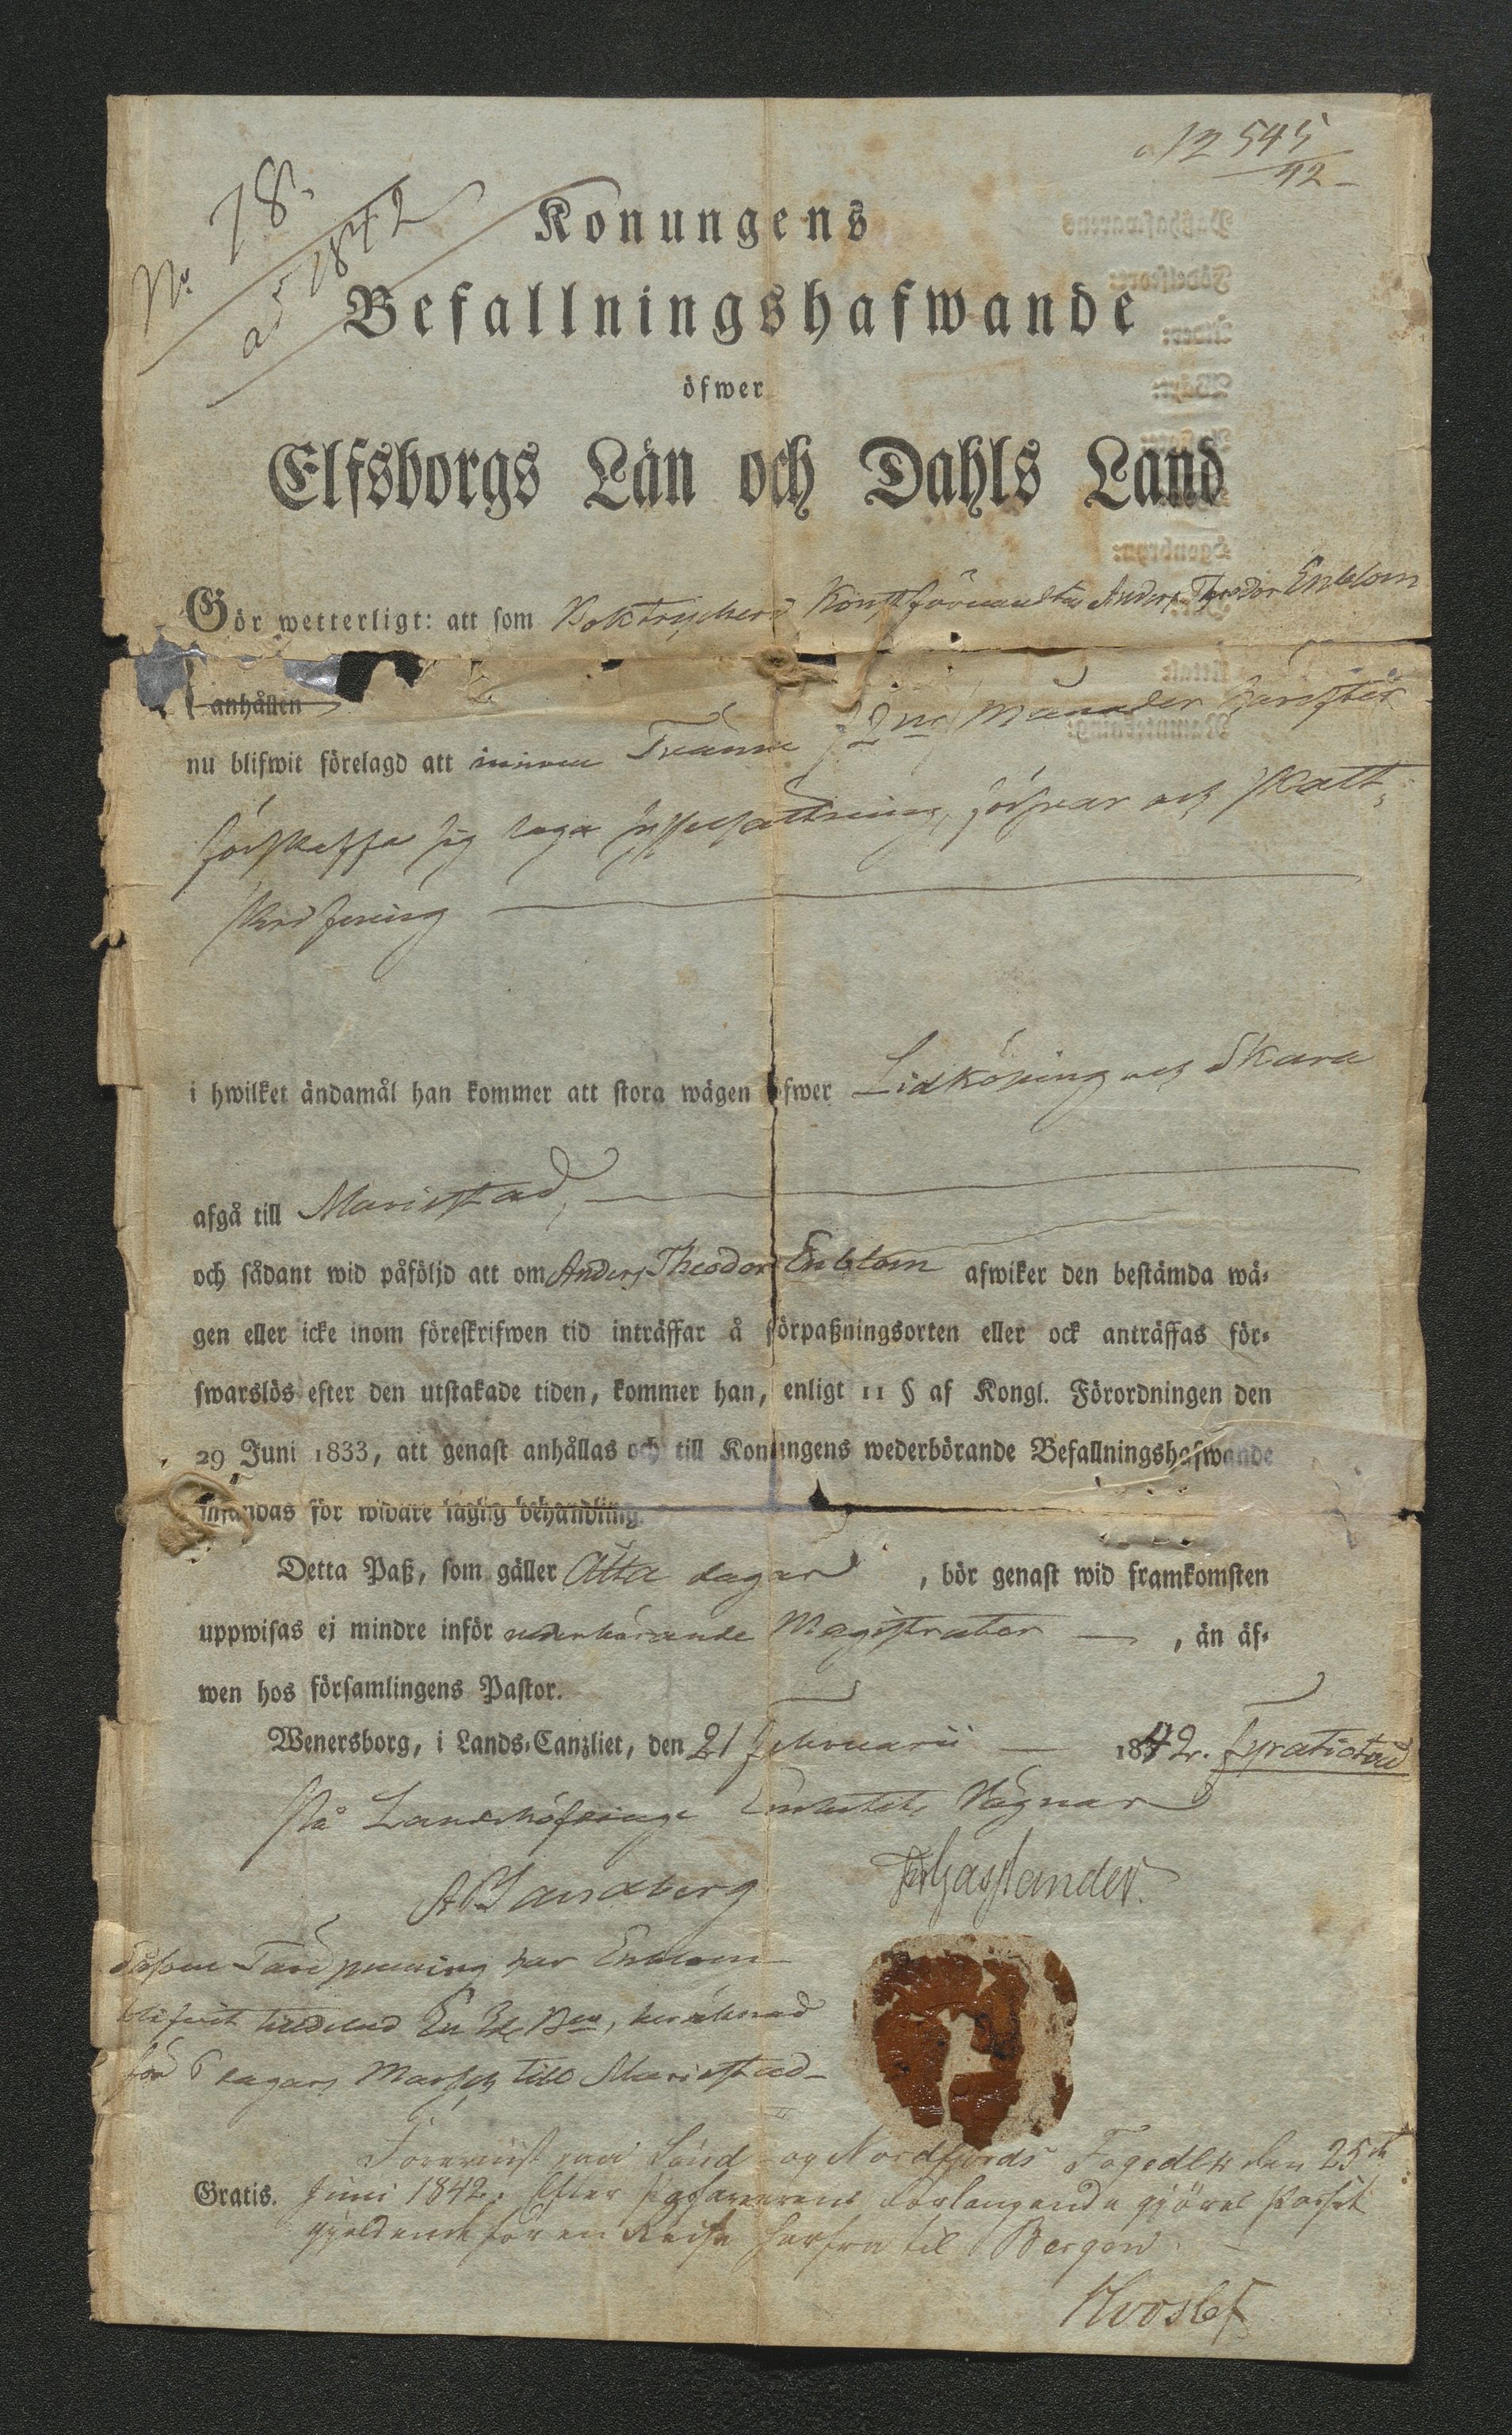 12 545
42
No 78.
ad 1842
Konungens
Befallningshafwande
öfwer
Elfsborgs Län och Dahls Land
Gör wetterligt: att som Boktryckeri Konstförvandten Anders Theodor Enblom
anhållen
nu blifwit förelagd att innom Tvänne 2ne Månader härefter
förskaffa sig laga sysselsättning, försvar och skatt-
skrifning
i hwilket ändamål han kommer att stora wägen öfwer Lidköping och Skara
afgå till Mariestad,
och sådant wid påföljd att om Anders Theodor Enblom afwiker den bestämda wä-
gen eller icke inom föreskrifwen tid inträffar å förpaßningsorten eller ock anträffas för-
swarslös efter den utstakade tiden, kommer han, enligt 11 § af Kongl. Förordningen den
29 Juni 1833, att genast anhållas och till Konungens wederbörande Befallningshafwande
insändas för widare laglig behandling.
Detta Paß, som gäller Åtta dagar, bör genast wid framkomsten
uppwisas ej mindre inför wederbörande Magistrater, än äf-
wen hos församlingens Pastor.
Wenersborg, i Lands-Canzliet, den 21 Februarii 1842. fyratiotvå
På Landshöfdinge Embetets Vägnar
A Sandberg
Tärpenning har Enblom
blifvit tilldelad En Rdr Bco, beräknad
för dagars Marsch till Mariestad
Foreviist paa Sönd- og Nordfjords Fogedk: den 25de
Gratis. Juni 1842. Efter Passhaverens Forlangende gjöres Passet
gjeldende for en Reise herfra til Bergen.
Hvoslef